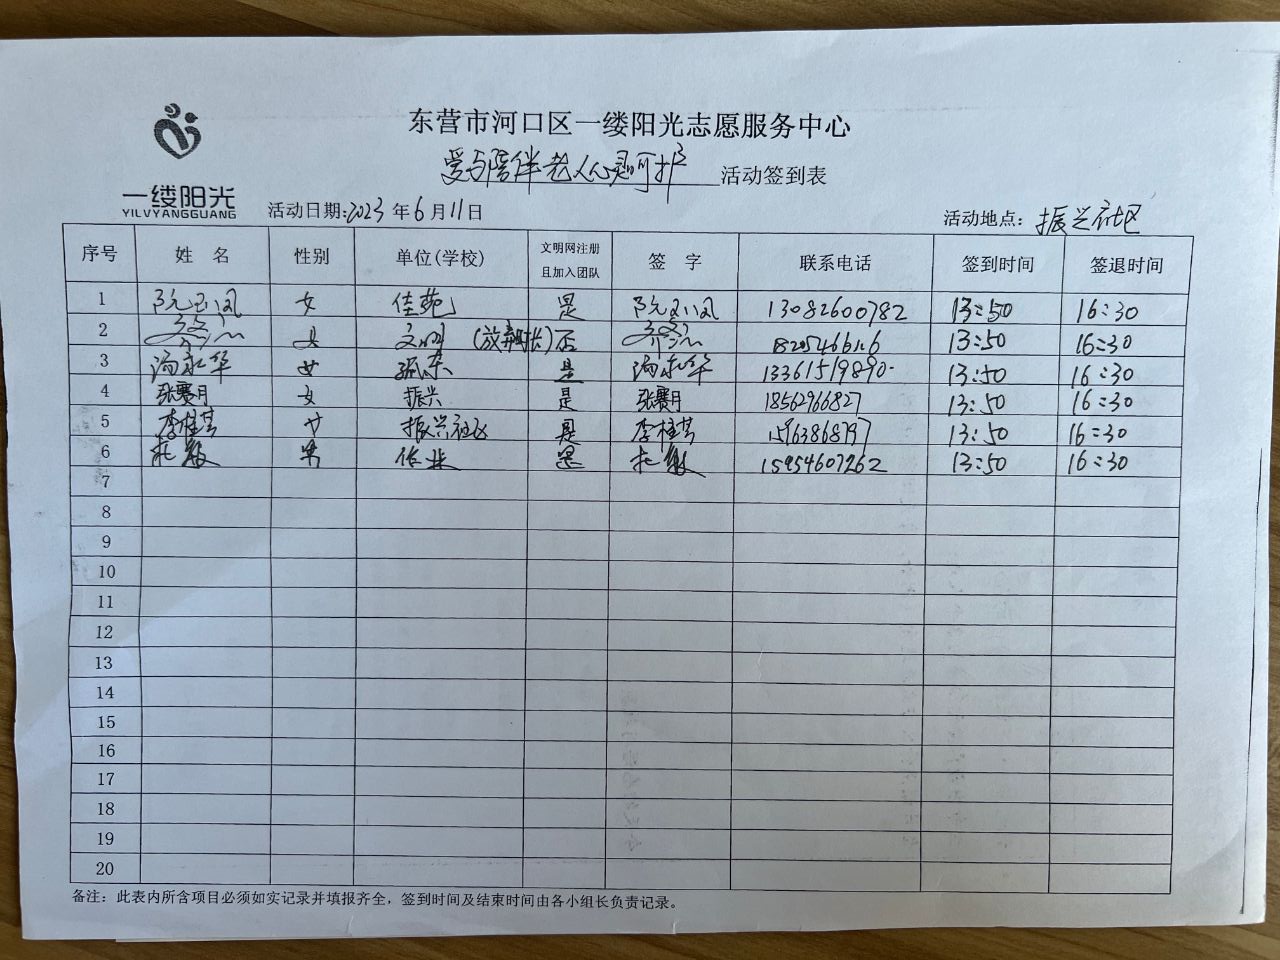 东营市河口区一缕阳光志愿服务中心
爱与陪伴老人心灵呵护 活动签到表
一缕阳光
YILVYANGGUANG
活动日期:2023年6月11日 活动地点: 振兴社区
序号 姓 名 性别 单位(学校) 文明网注册且加入团队 签 字 联系电话 签到时间 签退时间
1 阮玉凤 女 佳苑 是 阮玉凤 13082600782 13:50 16:30
2 女 文明 (放弃时长) 否 13:50 16:30
3 汤永华 女 振东 是 汤永华 13361519890 13:50 16:30
4 张赛月 女 振兴 是 张赛月 18562966827 13:50 16:30
5 李桂芳 女 振兴社区 是 李桂芳 13:50 16:30
6 男 是 15954607262 13:50 16:30
7
8
9
10
11
12
13
14
15
16
17
18
19
20
备注：此表内所含项目必须如实记录并填报齐全，签到时间及结束时间由各小组长负责记录。